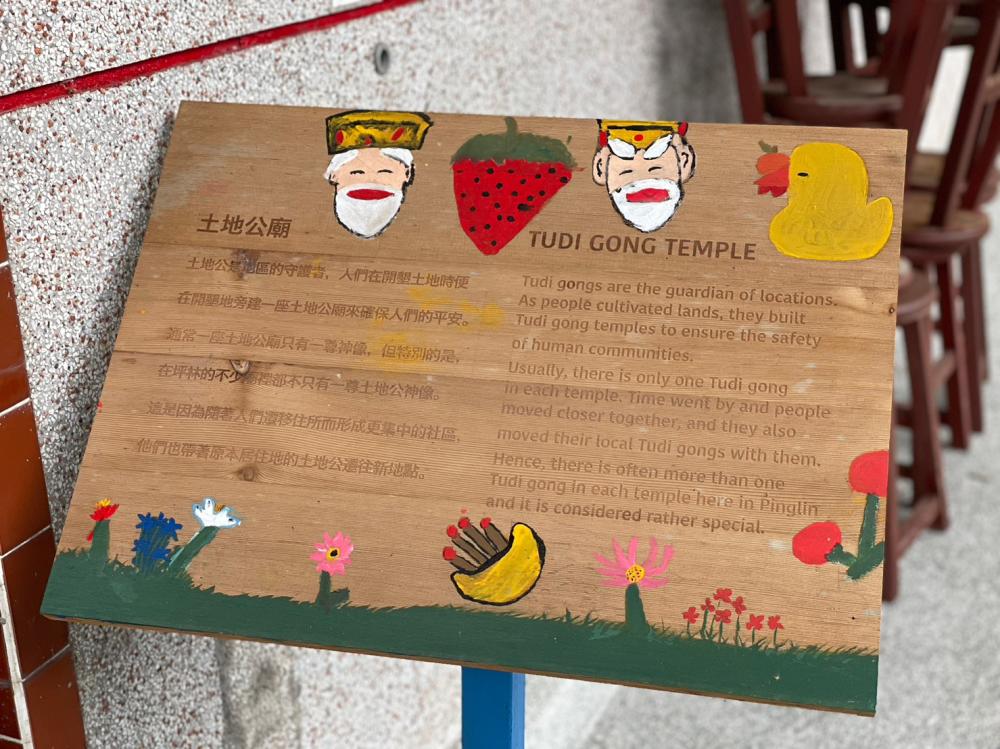 土地公廟
土地公是地區的守護者，人們在開墾土地時便
在開墾地旁建一座土地公廟來確保人們的平安。
通常一座土地公廟只有一尊神像，但特別的是，
在坪林的不少廟裡都不只有一尊土地公神像。
這是因為隨著人們遷移住所而形成更集中的社區，
他們也帶著原本居住地的土地公遷往新地點。
TUDI GONG TEMPLE
Tudi gongs are the guardian of locations.
As people cultivated lands, they built
Tudi gong temples to ensure the safety
of human communities.
Usually, there is only one Tudi gong
in each temple. Time went by and people
moved closer together, and they also
moved their local Tudi gongs with them.
Hence, there is often more than one
Tudi gong in each temple here in Pinglin
and it is considered rather special.